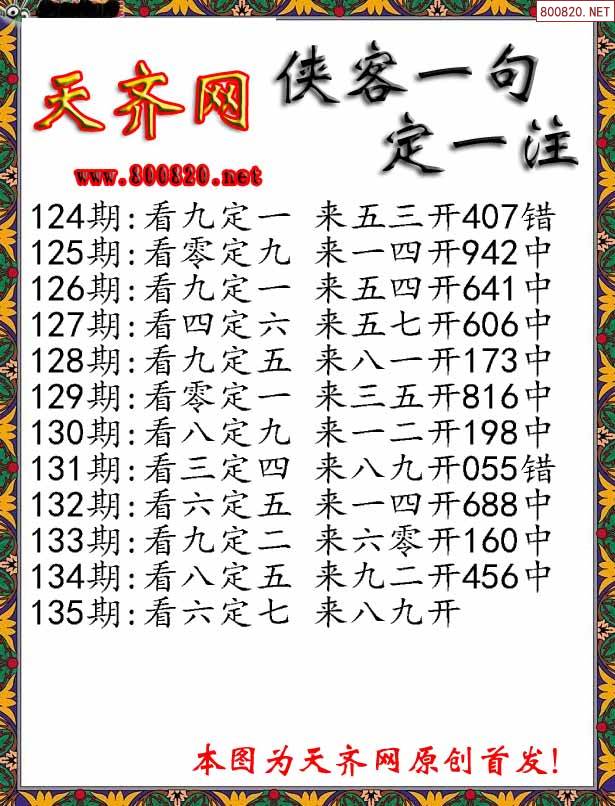 800820.NET
天齐网
侠客一句
定一注
www.800820.net
124期:看九定一 来五三开407错
125期:看零定九 来一四开942中
126期:看九定一 来五四开641中
127期:看四定六 来五七开606中
128期:看九定五 来八一开173中
129期:看零定一 来三五开816中
130期:看八定九 来一二开198中
131期:看三定四 来八九开055错
132期:看六定五 来一四开688中
133期:看九定二 来六零开160中
134期:看八定五 来九二开456中
135期:看六定七 来八九开
本图为天齐网原创首发!